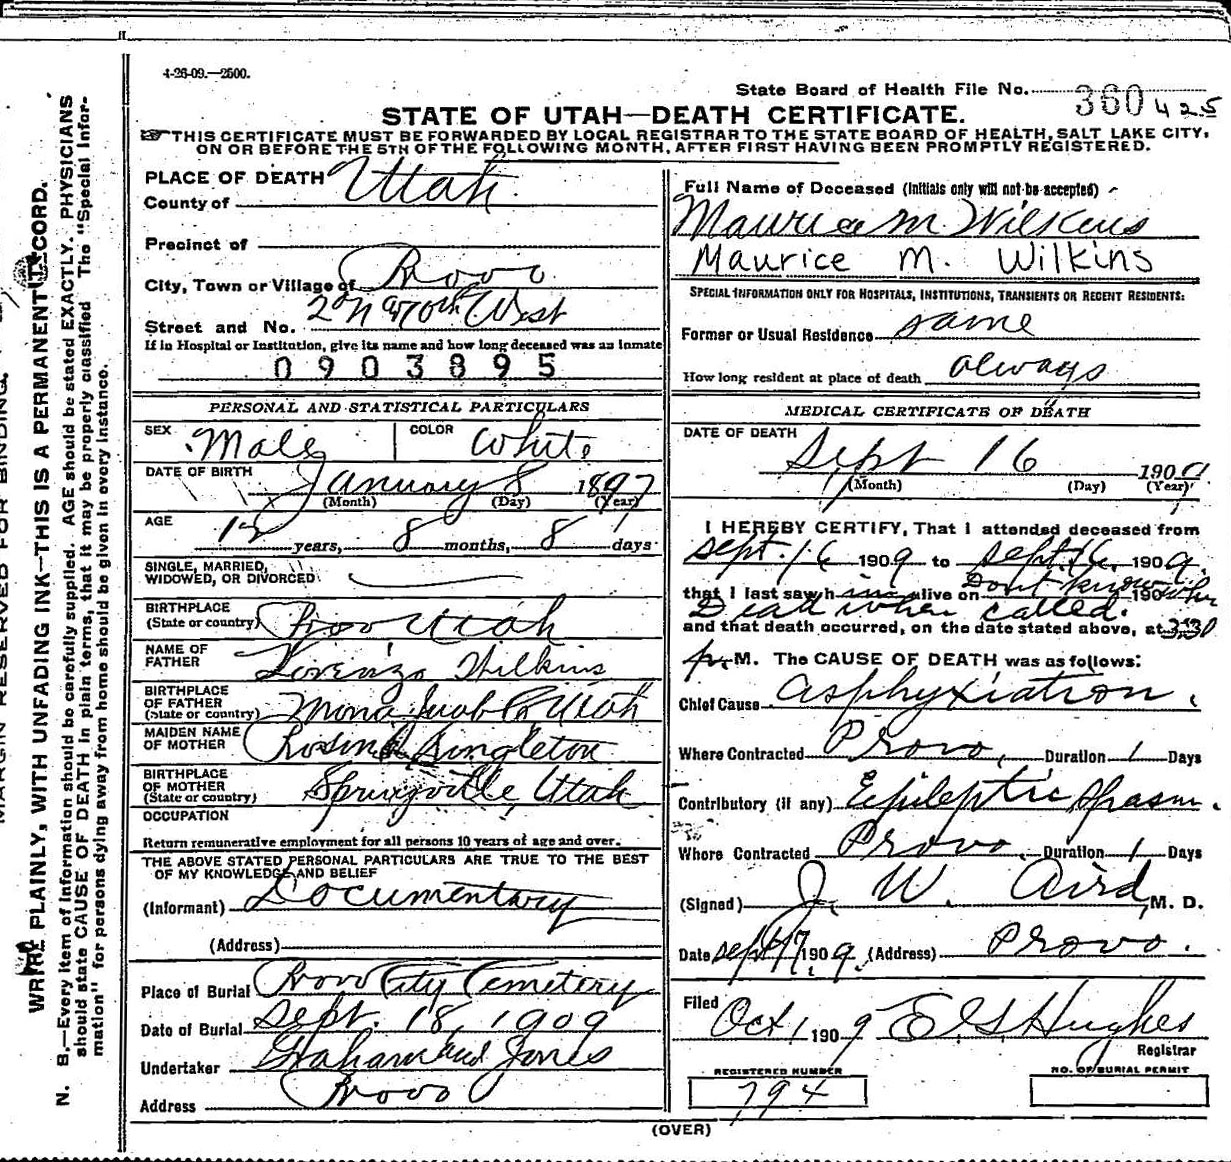 4-26-09.—2500.
State Board of Health File No. 360 425
STATE OF UTAH—DEATH CERTIFICATE.
THIS CERTIFICATE MUST BE FORWARDED BY LOCAL REGISTRAR TO THE STATE BOARD OF HEALTH, SALT LAKE CITY,
ON OR BEFORE THE 5TH OF THE FOLLOWING MONTH, AFTER FIRST HAVING BEEN PROMPTLY REGISTERED.
PLACE OF DEATH
County of Utah.
Precinct of
City, Town or Village of Provo
Street and No. West
If in Hospital or Institution, give its name and how long deceased was an inmate
0903895
PERSONAL AND STATISTICAL PARTICULARS
SEX Male COLOR White
DATE OF BIRTH January 8 1897
(Month) (Day) (Year)
AGE 12 years, 8 months, 8 days
SINGLE, MARRIED,
WIDOWED, OR DIVORCED
BIRTHPLACE
(State or country) Provo Utah
NAME OF
FATHER Lorenzo Wilkins
BIRTHPLACE
OF FATHER
(State or country) Utah
MAIDEN NAME
OF MOTHER Rosina Singleton
BIRTHPLACE
OF MOTHER
(State or country) Springville, Utah
OCCUPATION
Return remunerative employment for all persons 10 years of age and over.
THE ABOVE STATED PERSONAL PARTICULARS ARE TRUE TO THE BEST
OF MY KNOWLEDGE AND BELIEF
(Informant) Documentary
(Address)
Place of Burial Provo City Cemetery
Date of Burial Sept. 18, 1909
Undertaker Graham and Jones
Address Provo
Full Name of Deceased (Initials only will not be accepted)
Maurice M. Wilkins
Maurice M. Wilkins
SPECIAL INFORMATION ONLY FOR HOSPITALS, INSTITUTIONS, TRANSIENTS OR RECENT RESIDENTS:
Former or Usual Residence same
How long resident at place of death always
MEDICAL CERTIFICATE OF DEATH
DATE OF DEATH
Sept 16 1909
(Month) (Day) (Year)
I HEREBY CERTIFY, That I attended deceased from
Sept. 16 1909 to Sept. 16, 1909.
that I last saw h im alive on Dont know 190
Dead when called.
and that death occurred, on the date stated above, at 3:30
p. M. The CAUSE OF DEATH was as follows:
Chief Cause asphyxiation.
Where Contracted Provo, Duration 1 Days
Contributory (if any) Epileptic spasm.
Where Contracted Provo, Duration 1 Days
(Signed) J. W. Aird, M. D.
Date Sept 17, 1909. (Address) Provo.
Filed Oct 1 1909 E G Hughes
Registrar
REGISTERED NUMBER
794
NO. OF BURIAL PERMIT
(OVER)
MARGIN RESERVED FOR BINDING.
WRITE PLAINLY, WITH UNFADING INK—THIS IS A PERMANENT RECORD.
N. B.—Every item of information should be carefully supplied. AGE should be stated EXACTLY. PHYSICIANS
should state CAUSE OF DEATH in plain terms, that it may be properly classified. The "Special Infor-
mation" for persons dying away from home should be given in every instance.